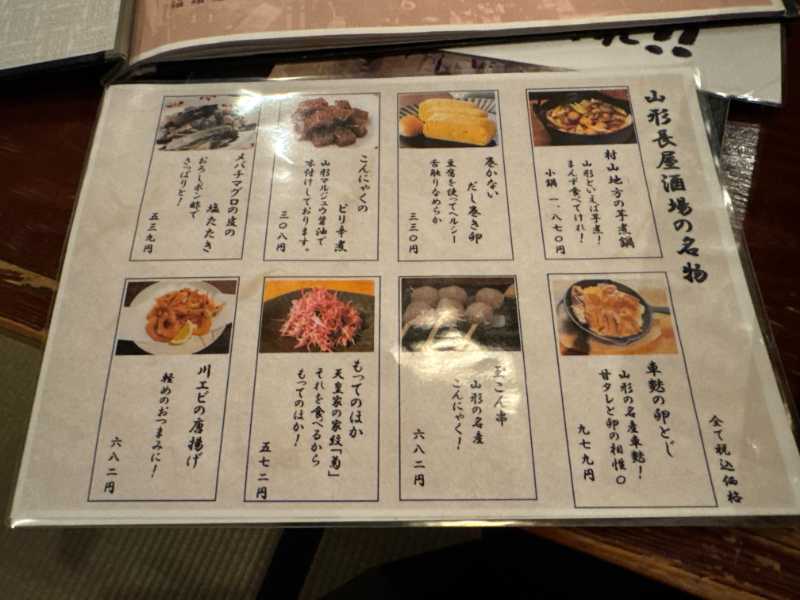 山形長屋酒場の名物
村山地方の芋煮鍋
山形といえば芋煮!
まんず食べてけれ!
小鍋 一、八七〇円
巻かない
だし巻き卵
豆腐を使ってヘルシー
舌触りなめらか
三三〇円
こんにゃくの
ピリ辛煮
山形マルジュウ醤油で
味付けしております。
三〇八円
メバチマグロの皮の
塩たたき
おろしポン酢で
さっぱりと!
五三九円
車麩の卵とじ
山形の名産車麩!
甘タレと卵の相性〇
九七九円
玉こん串
山形の名産
こんにゃく!
六八二円
もってのほか
天皇家の家紋「菊」
それを食べるから
もってのほか!
五七二円
川エビの唐揚げ
軽めのおつまみに!
六八二円
全て税込価格